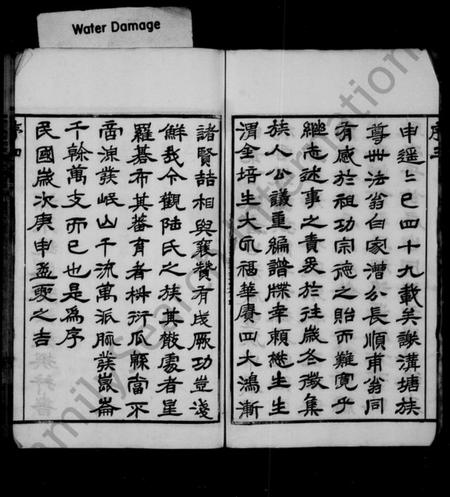 Water Damage
序三
申遥遥已四十九載矣謙溝塘族
尊世法翁自家漕公長順甫翁同
有感於祖功宗德之貽而難寬乎
繼志述事之責爰於往歲冬徵集
族人公議重編譜牒幸賴總生生
渭全培生大永福華賡四大鴻漸
諸賢喆相與襄贊有成厥功豈淺
鮮哉今觀陸氏之族其散處者星
羅碁布其蕃育者椒衍瓜緜當不
啻源發岷山千流萬派脈發崑崙
千榦萬支而已也是為序
民國歲次庚申孟夏之吉
序四